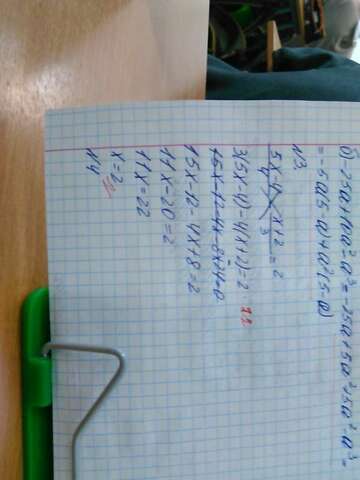 б) -25a+10a²-a³=-25a+5a²+5a²-a³=
=-5a(5-a)+a²(5-a)
N3
(5x-4)/4 - (x+2)/3 = 2
3(5x-4)-4(x+2)=2
15x-12-4x-8+24=0
15x-12-4x+8=2
11x-20=2
11x=22
x=2
N4